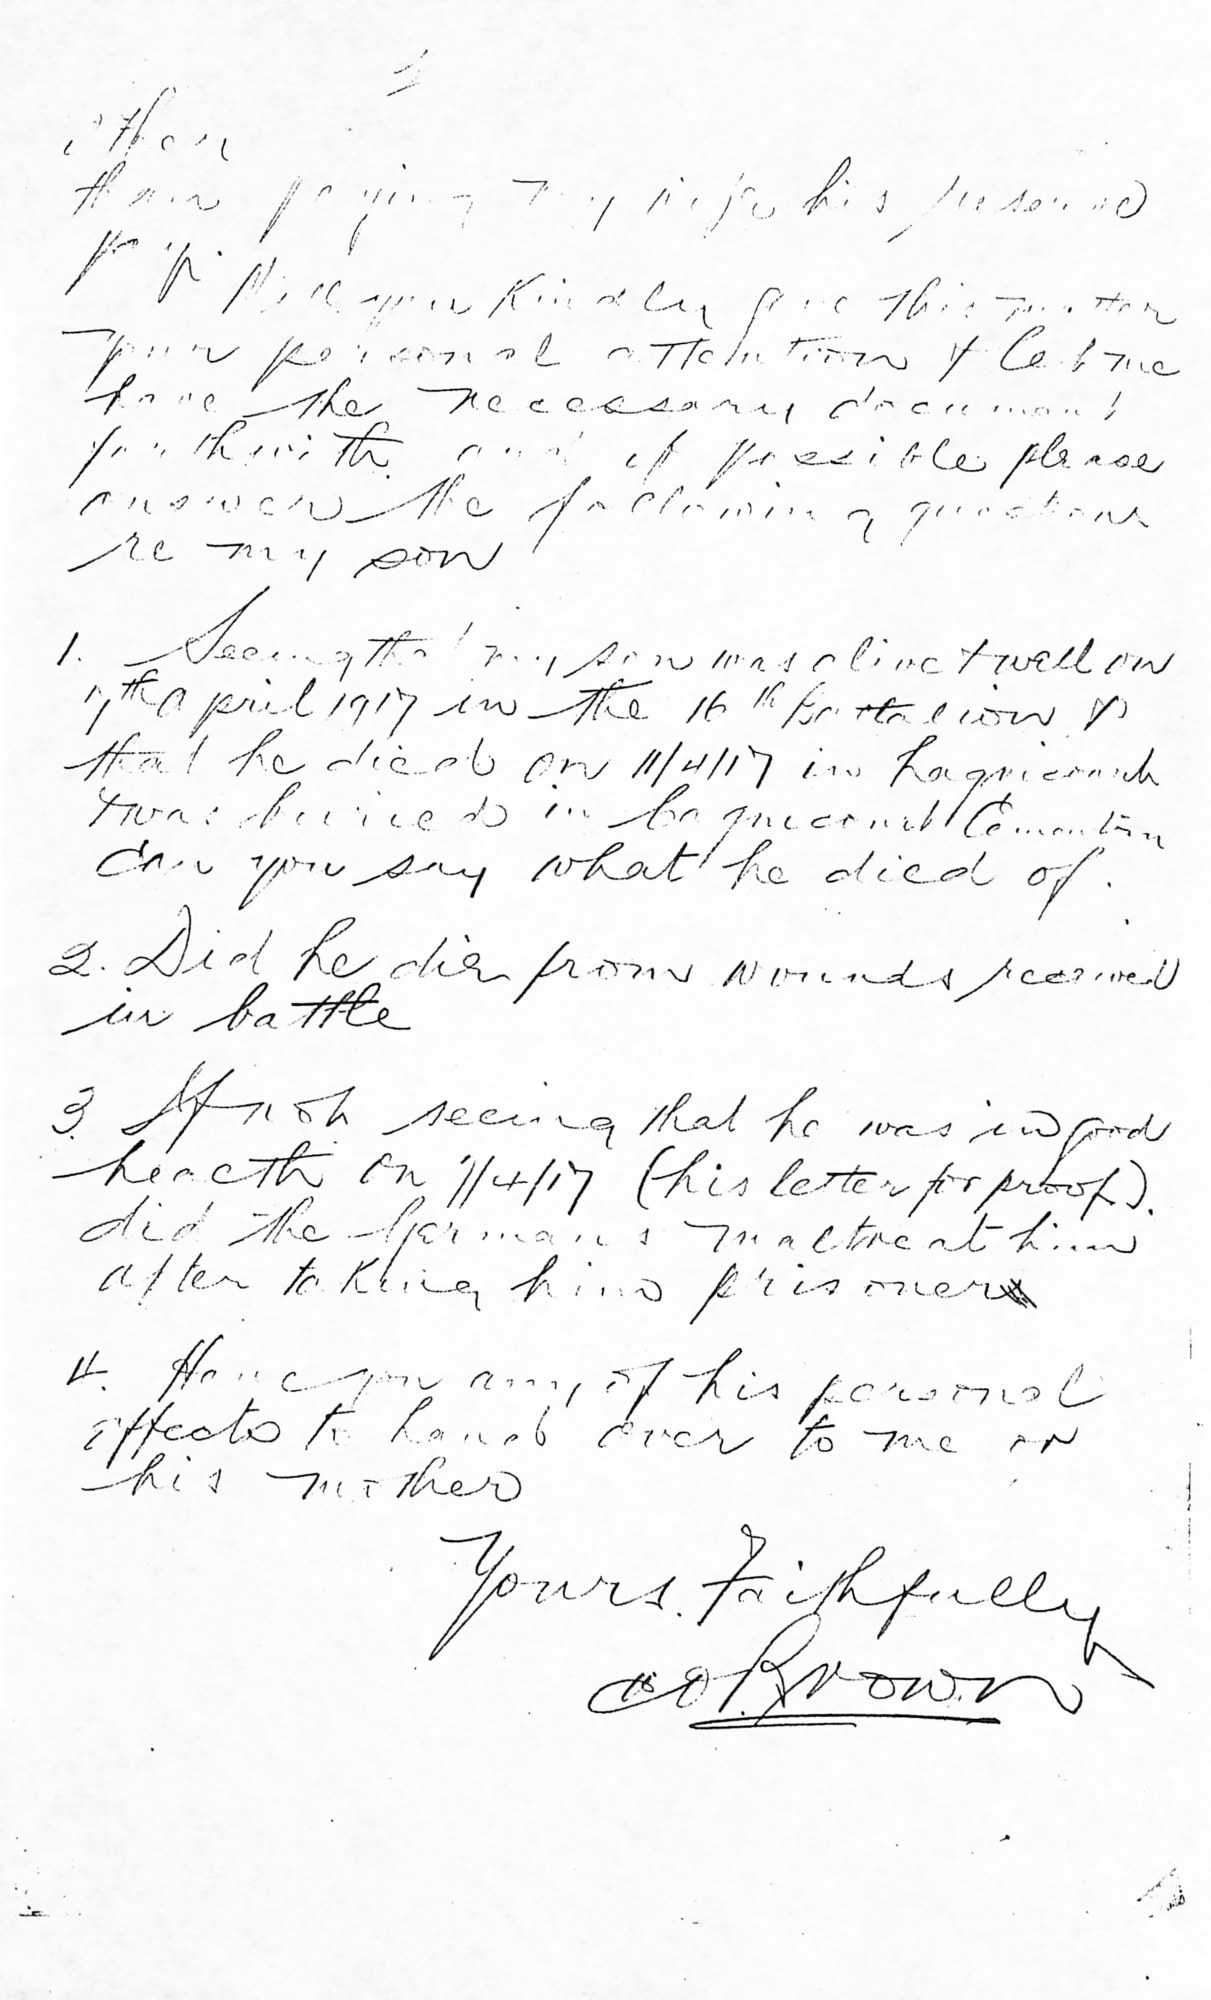 than
than paying my wife his reserved
pay.
Will you Kindly give this matter
your personal attention & let me
have the necessary document
forthwith and if possible please
answer the following questions
re my son
1. Seeing that my son was alive & well on
7th April 1917 in the 16th Battalion &
that he died on 11/4/17 in Lagnicourt
& was buried in Lagnicourt Cemetery
Can you say what he died of.
2. Did he die from wounds received
in battle
3. If not seeing that he was in good
health on 7/4/17 (his letter for proof).
did the Germans maltreat him
after taking him prisoner
4. Have you any of his personal
effects to hand over to me or
his mother
Yours Faithfully
Brown